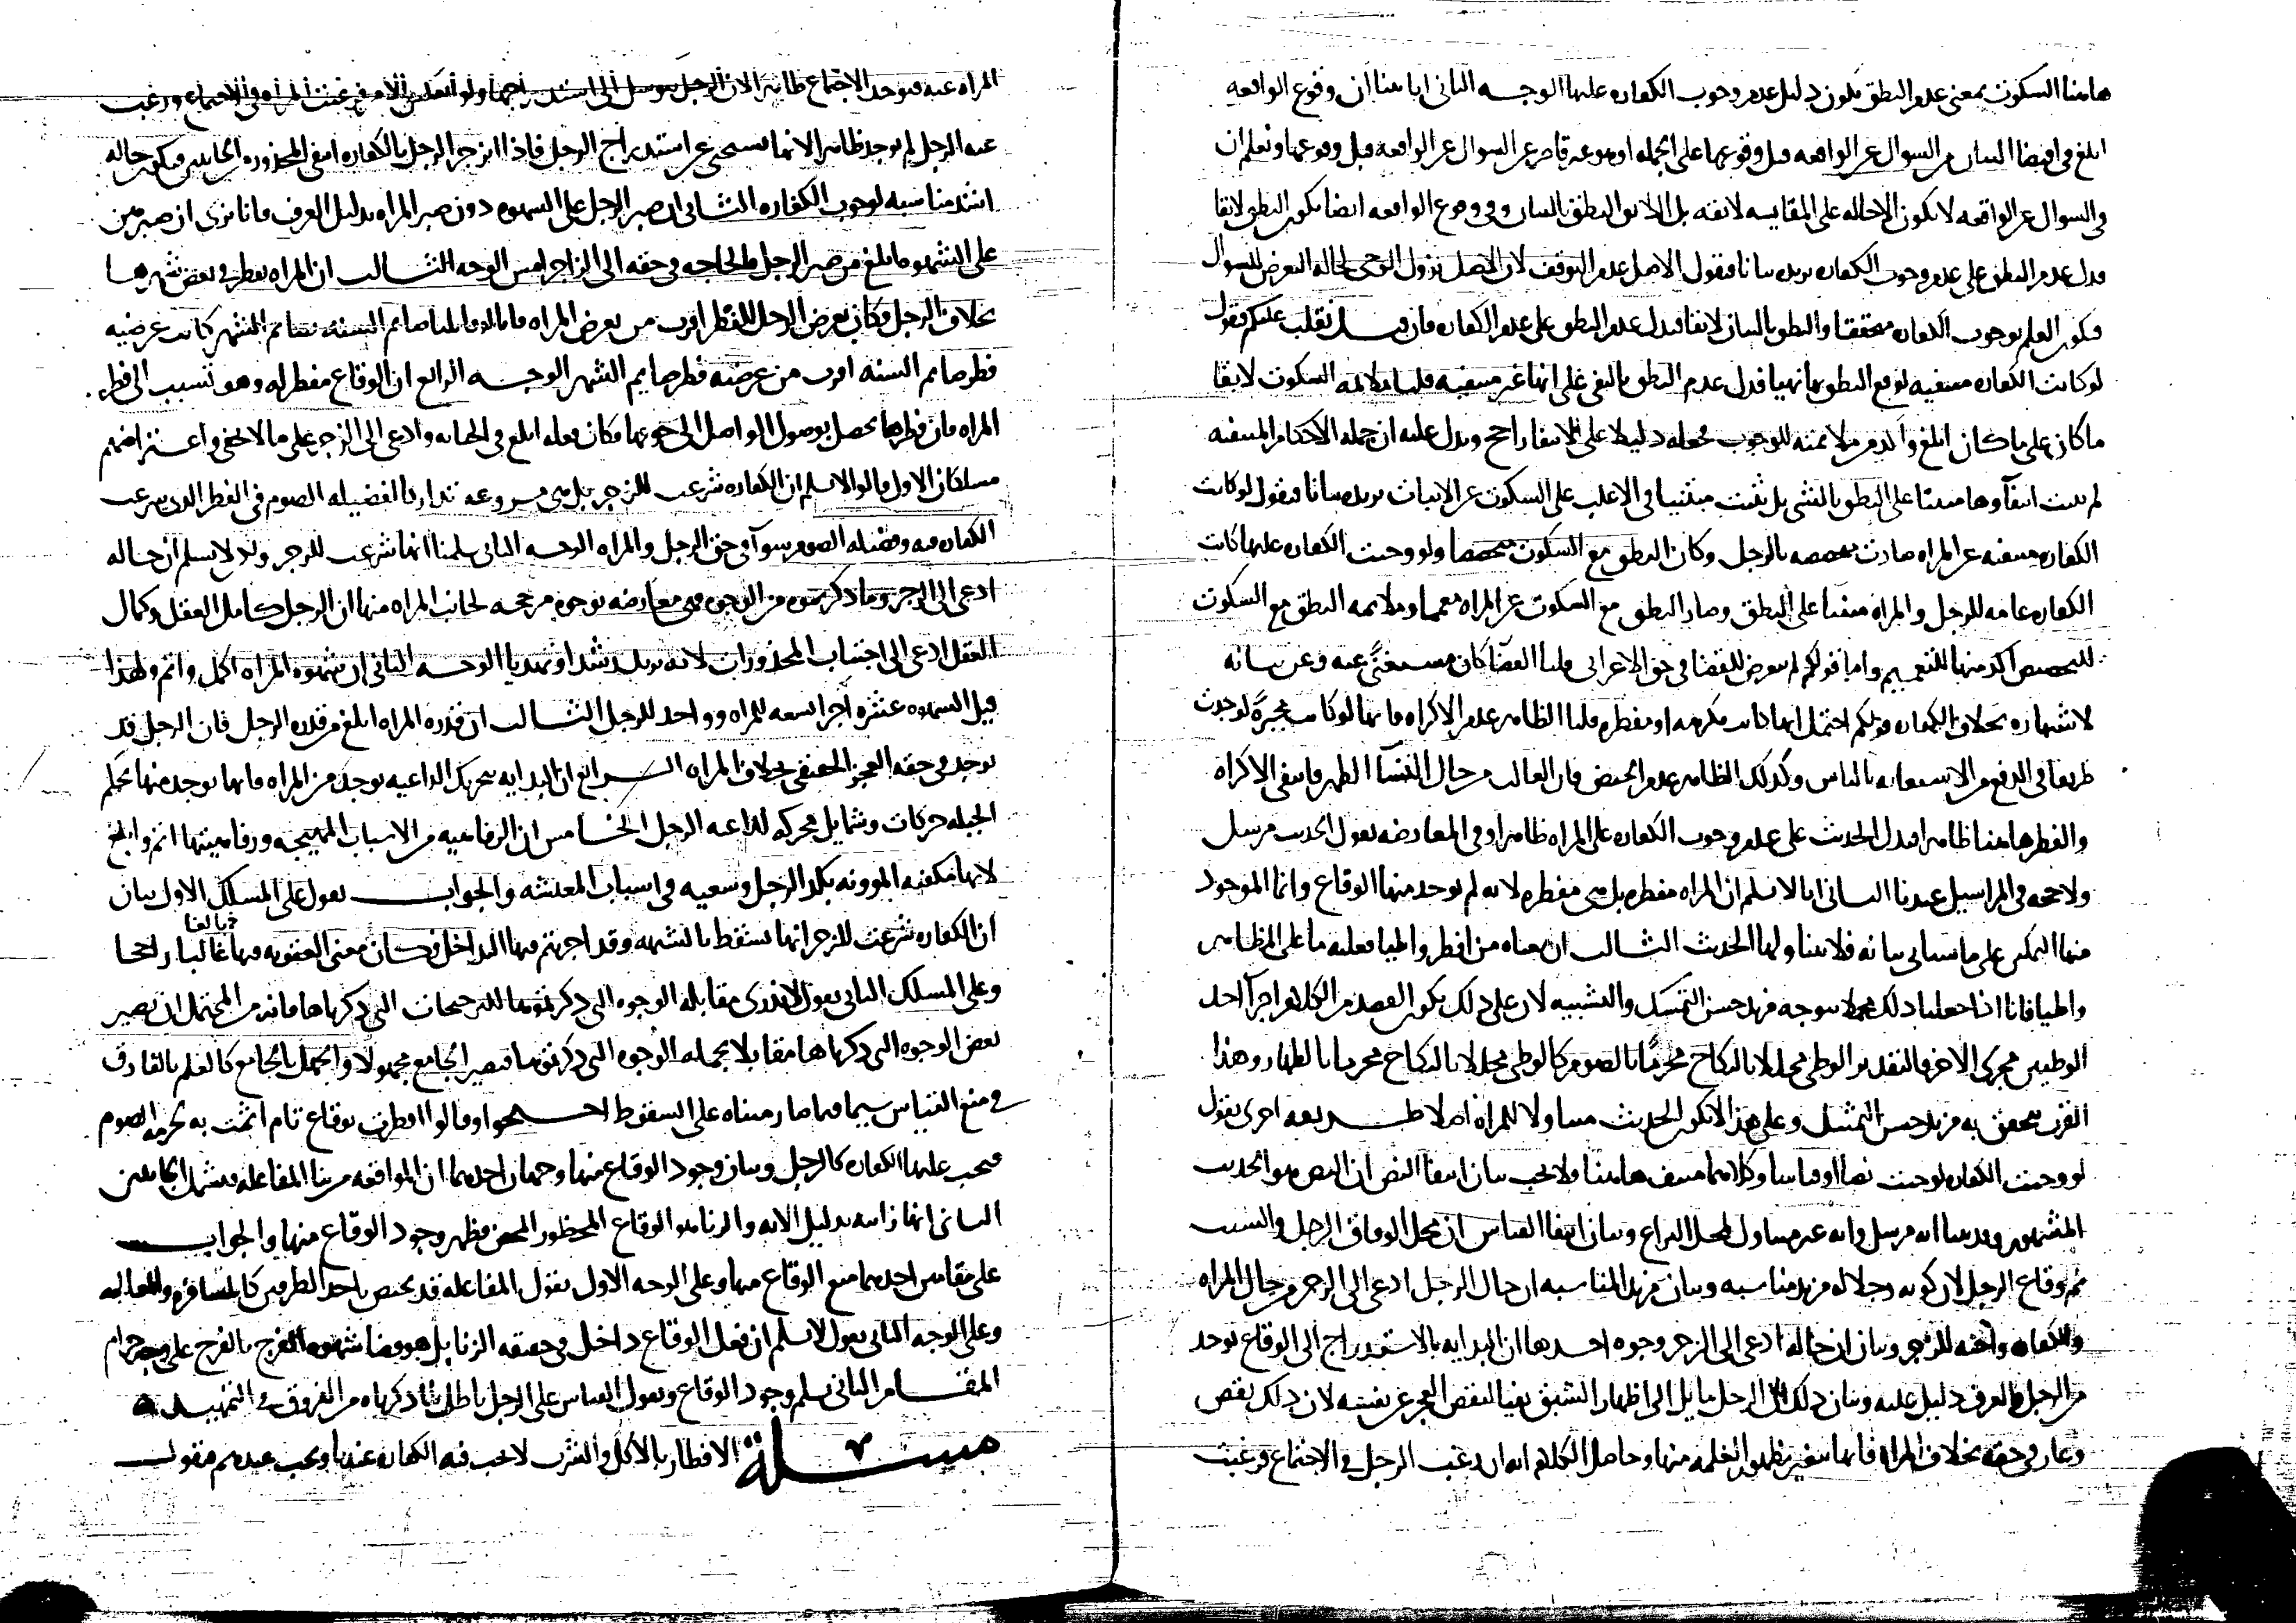 هاهنا السكوت بمعنى عدم النطق يكون دليل عدم وجوب الكفاره عليها الوجه الثاني انا بينا ان وقوع الواقعه
ابلغ في اقتضا البيان من السوال عن الواقعه قبل وقوعها على الجمله او هو غير قاصر عن السوال عن الواقعه قبل وقوعها ونعلم ان
في السوال عن الواقعه لا يكون الاحاله على المقايسه لايقه بل اللايق النطق بالبيان وفي وقوع الواقعه ايضا يكون النطق لايقا
فدل عدم النطق على عدم وجوب الكفاره يزيده بيانا فنقول الاصل عدم التوقف لان الاصل نزول الوحي لحاله التعرض للسوال
فيكون العلم بوجوب الكفاره متحققا والنطق بالبيان لايقا فيدل عدم النطق على عدم الكفاره فان قيل نقلب عليكم فنقول
لو كانت الكفاره منتفيه لوقع النطق بها نفيا فدل عدم النطق بالنفي على انها غير منتفيه قلنا ملايمه السكوت لانتفا
ما كان على ما كان ابلغ واكد من ملايمته للوجوب فجعله دليلا على الانتفا راجح ويدل عليه ان جمله الاحكام المنتفيه
لم يثبت انتفاوها مبنيا على النطق بالنفي بل ثبت مبنيا في الاغلب على السكوت عن الاثبات يزيده بيانا فنقول لو كانت
الكفاره منتفيه عن المراه صارت مخصصه بالرجل وكان النطق مع السكوت مخصصا ولو وجبت الكفاره عليها كانت
الكفاره عامه للرجل والمراه مبنيا على النطق وصار النطق مع السكوت عن المراه معمما وملايمه النطق مع السكوت
للتخصيص اكد منها للتعميم واما قولكم لم يتعرض للقضا في حق الاعرابي قلنا القضا كان مستغنى عنه وعن بيانه
لاشتهاره بخلاف الكفاره قولكم احتمل انها كانت مكرهه او مفطره قلنا الظاهر عدم الاكراه فانها لو كانت مجبرة لوجدت
طريقا في الدفع من الاستغاثه بالناس وكذلك الظاهر عدم الحيض فان الغالب من حال النسآ الطهر فانتفى الاكراه
والفطر هاهنا ظاهرا فيدل الحديث على عدم وجوب الكفاره على المراه ظاهرا وفي المعارضه نقول الحديث مرسل
ولا حجه في المراسيل عندنا الثاني انا لا نسلم ان المراه مفطره بل هي مفطره لانه لم يوجد منها الوقاع وانما الموجود
منها التمكين على ما سياتي بيانه فلا يتناولها الحديث الثالث ان معناه من افطر واطيا فعليه ما على المظاهر
واطيا فانا اذا جعلنا ذلك محملا يتوجه مزيد حسن التمسك والتشبيه لان على ذلك يكون القصد من الكلام اجرآ احد
الوطيين مجرى الاخر فالتقدير الوطي محللا بالنكاح محرما بالصوم كالوطي محللا بالنكاح محرما بالظهار وهذا
القدر يتحقق به مزيد حسن التمثيل وعلى هذا لا يكون الحديث متناولا للمراه اصلا طريقه اخرى نقول
لو وجبت الكفاره لوجبت نصا او قياسا وكلاهما منتف هاهنا فلا تجب بيان انتفا النص ان النص هو الحديث
المشهور وقد بينا انه مرسل وانه غير متناول لمحل النزاع وبيان انتفا القياس ان محل الوفاق الرجل والسبب
ثم وقاع الرجل لان كونه رجلا له مزيد مناسبه وبيان مزيد المناسبه ان حال الرجل ادعى الى الزجر من حال المراه
والكفاره واجبه للزجر وبيان ان حاله ادعى الى الزجر وجوه احدها ان البدايه بالاستدراج الى الوقاع توجد
من الرجل والعرف دليل عليه وبيان ذلك ان الرجل مايل الى اظهار الشبق نفيا لنقص العجز عن نفسه لان ذلك نقص
وعار في حقه بخلاف المراه فانها تتغير بظهور الغلمه منها وحاصل الكلام انه ان رغب الرجل في الاجتماع فرغبت
المراه عنه فيوجد الاجتماع ظاهرا لان الرجل يتوسل الى استدراجها ولو انعكس الامر فرغبت المراه في الاجتماع ورغب
عنه الرجل لم يوجد ظاهرا لانها تستحي عن استدراج الرجل فاذا انزجر الرجل بالكفاره انتفى المحذور من الجانبين فيكون حاله
اشد مناسبه لوجوب الكفاره الثاني ان صبر الرجل على الشهوه دون صبر المراه بدليل العرف فانا نرى ان صبرهن
على الشهوه ما بلغ من صبر الرجل فالحاجه في حقه الى الزاجر امس الوجه الثالث ان المراه تفطر في بعض شهرها
بخلاف الرجل فكان تعرض الرجل للفطر اقرب من تعرض المراه فانا لو قابلنا صايم السنه بصايم الشهر كانت عرضيه
فطر صايم السنه اقرب من عرضه فطر صايم الشهر الوجه الرابع ان الوقاع مفطر له وهو تسبب الى فطر
المراه فان فطرها يحصل بوصول الواصل الى جوفها فكان فعله ابلغ في الجنايه وادعى الى الزجر على ما لا يخفى واعتراضهم
مسلكان الاول قالوا لا نسلم ان الكفاره شرعت للزجر بل هي مشروعه تداركا لفضيله الصوم في الفطر الذي شرعت
الكفاره فيه وفضيله الصوم سوآ في حق الرجل والمراه الوجه الثاني سلمنا انها شرعت للزجر ولكن لا نسلم ان حاله
ادعى الى الزجر وما ذكرتموه من الوجوه فهي معارضه بوجوه مرجحه لجانب المراه منها ان الرجل كامل العقل وكمال
العقل ادعى الى اجتناب المحذورات لانه يزيد رشدا وتهديا الوجه الثاني ان شهوه المراه اكمل واتم ولهذا
قيل الشهوه عشره اجزا تسعه للمراه وواحد للرجل الثالث ان قدره المراه ابلغ من قدره الرجل فان الرجل قد
يوجد في حقه العجز الحقيقي بخلاف المراه الرابع ان البدايه بتحريك الداعيه يوجد من المراه فانها يوجد منها بحكم
الجبله حركات وشمايل محركه لداعيه الرجل الخامس ان الرفاهيه من الاسباب المهيجه ورفاهيتها اتم وابلغ
لانها مكفيه الموونه بكد الرجل وسعيه في اسباب المعيشه والجواب نقول على المسلك الاول بيان
ان الكفاره شرعت للزجر انها تسقط بالشبهه وقد اجريتم فيها التداخل فكان معنى العقوبه فيها غالبا راجحا
وعلى المسلك الثاني نقول لا ندري مقابله الوجوه التي ذكرتموها للترجيحات التي ذكرناها فانه من المحتمل ان يصير
بعض الوجوه التي ذكرناها مقابلا بجمله الوجوه التي ذكرتموها فيصير الجامع مجهولا والجهل بالجامع كالعلم بالفارق
في منع القياس سيما فيما صار مبناه على السقوط احتجوا وقالوا افطرت بوقاع تام اثمت به لحرمه الصوم
فتجب عليها الكفاره كالرجل وبيان وجود الوقاع منها وجهان احدهما ان المواقعه من بنا المفاعله فيشمل الجانبين
الثاني انها زانيه بدليل الايه والزنا هو الوقاع المحظور المحض فظهر وجود الوقاع منها والجواب
على مقامين احدهما منع الوقاع منها وعلى الوجه الاول نقول المفاعله قد يختص باحد الطرفين كالمسافره والمعالجه
وعلى الوجه الثاني نقول لا نسلم ان فعل الوقاع داخل في حقيقه الزنا بل هو قضا شهوه الفرج بالفرج على وجه حرام
المقام الثاني نسلم وجود الوقاع ونقول القياس على الرجل باطل بما ذكرناه من الفروق في التمهيد
مسئلة الافطار بالاكل والشرب لا تجب فيه الكفاره عندنا وتجب عندهم فنقول